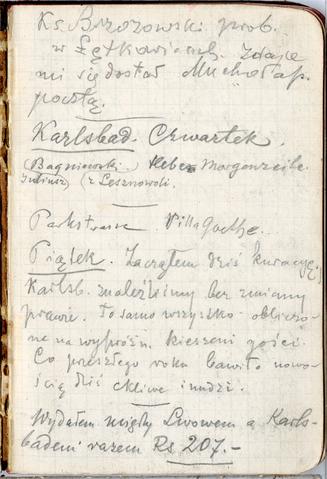 Ks. Brzozowski prob.
w Łętkowicach. Zdaje
mi się dostał Muchołap.
pocztą.
Karlsbad. Czwartek.
(Bagniewski Kleber Morgenzeile
Juliusz) (z Lesznowoli.
Parkstrasse Villa Goethe
Piątek. Zacząłem dziś kuracyę.
Karlsb. znaleźliśmy bez zmiany
prawie. To samo wszystko obliczo-
ne na wypróżn. kieszeni gości.
Co przeszłego roku bawiło nowo-
ścią dziś ckliwe i nudzi.
Wydałem między Lwowem a Karls-
badem razem Rs 207.-